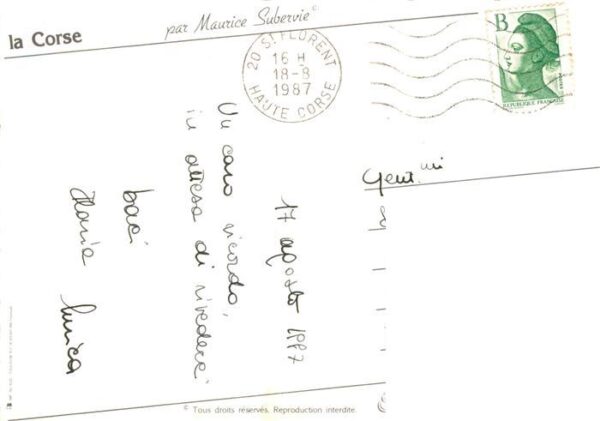 la Corse
par Maurice Subervie
B
REPUBLIQUE FRANÇAISE
20 ST FLORENT
16 H
18-8
1987
HAUTE CORSE
Gent.mi
17 agosto 1987
Un caro ricordo,
in attesa di rivederci
baci
Ilaria Enrica
© Tous droits réservés. Reproduction interdite.